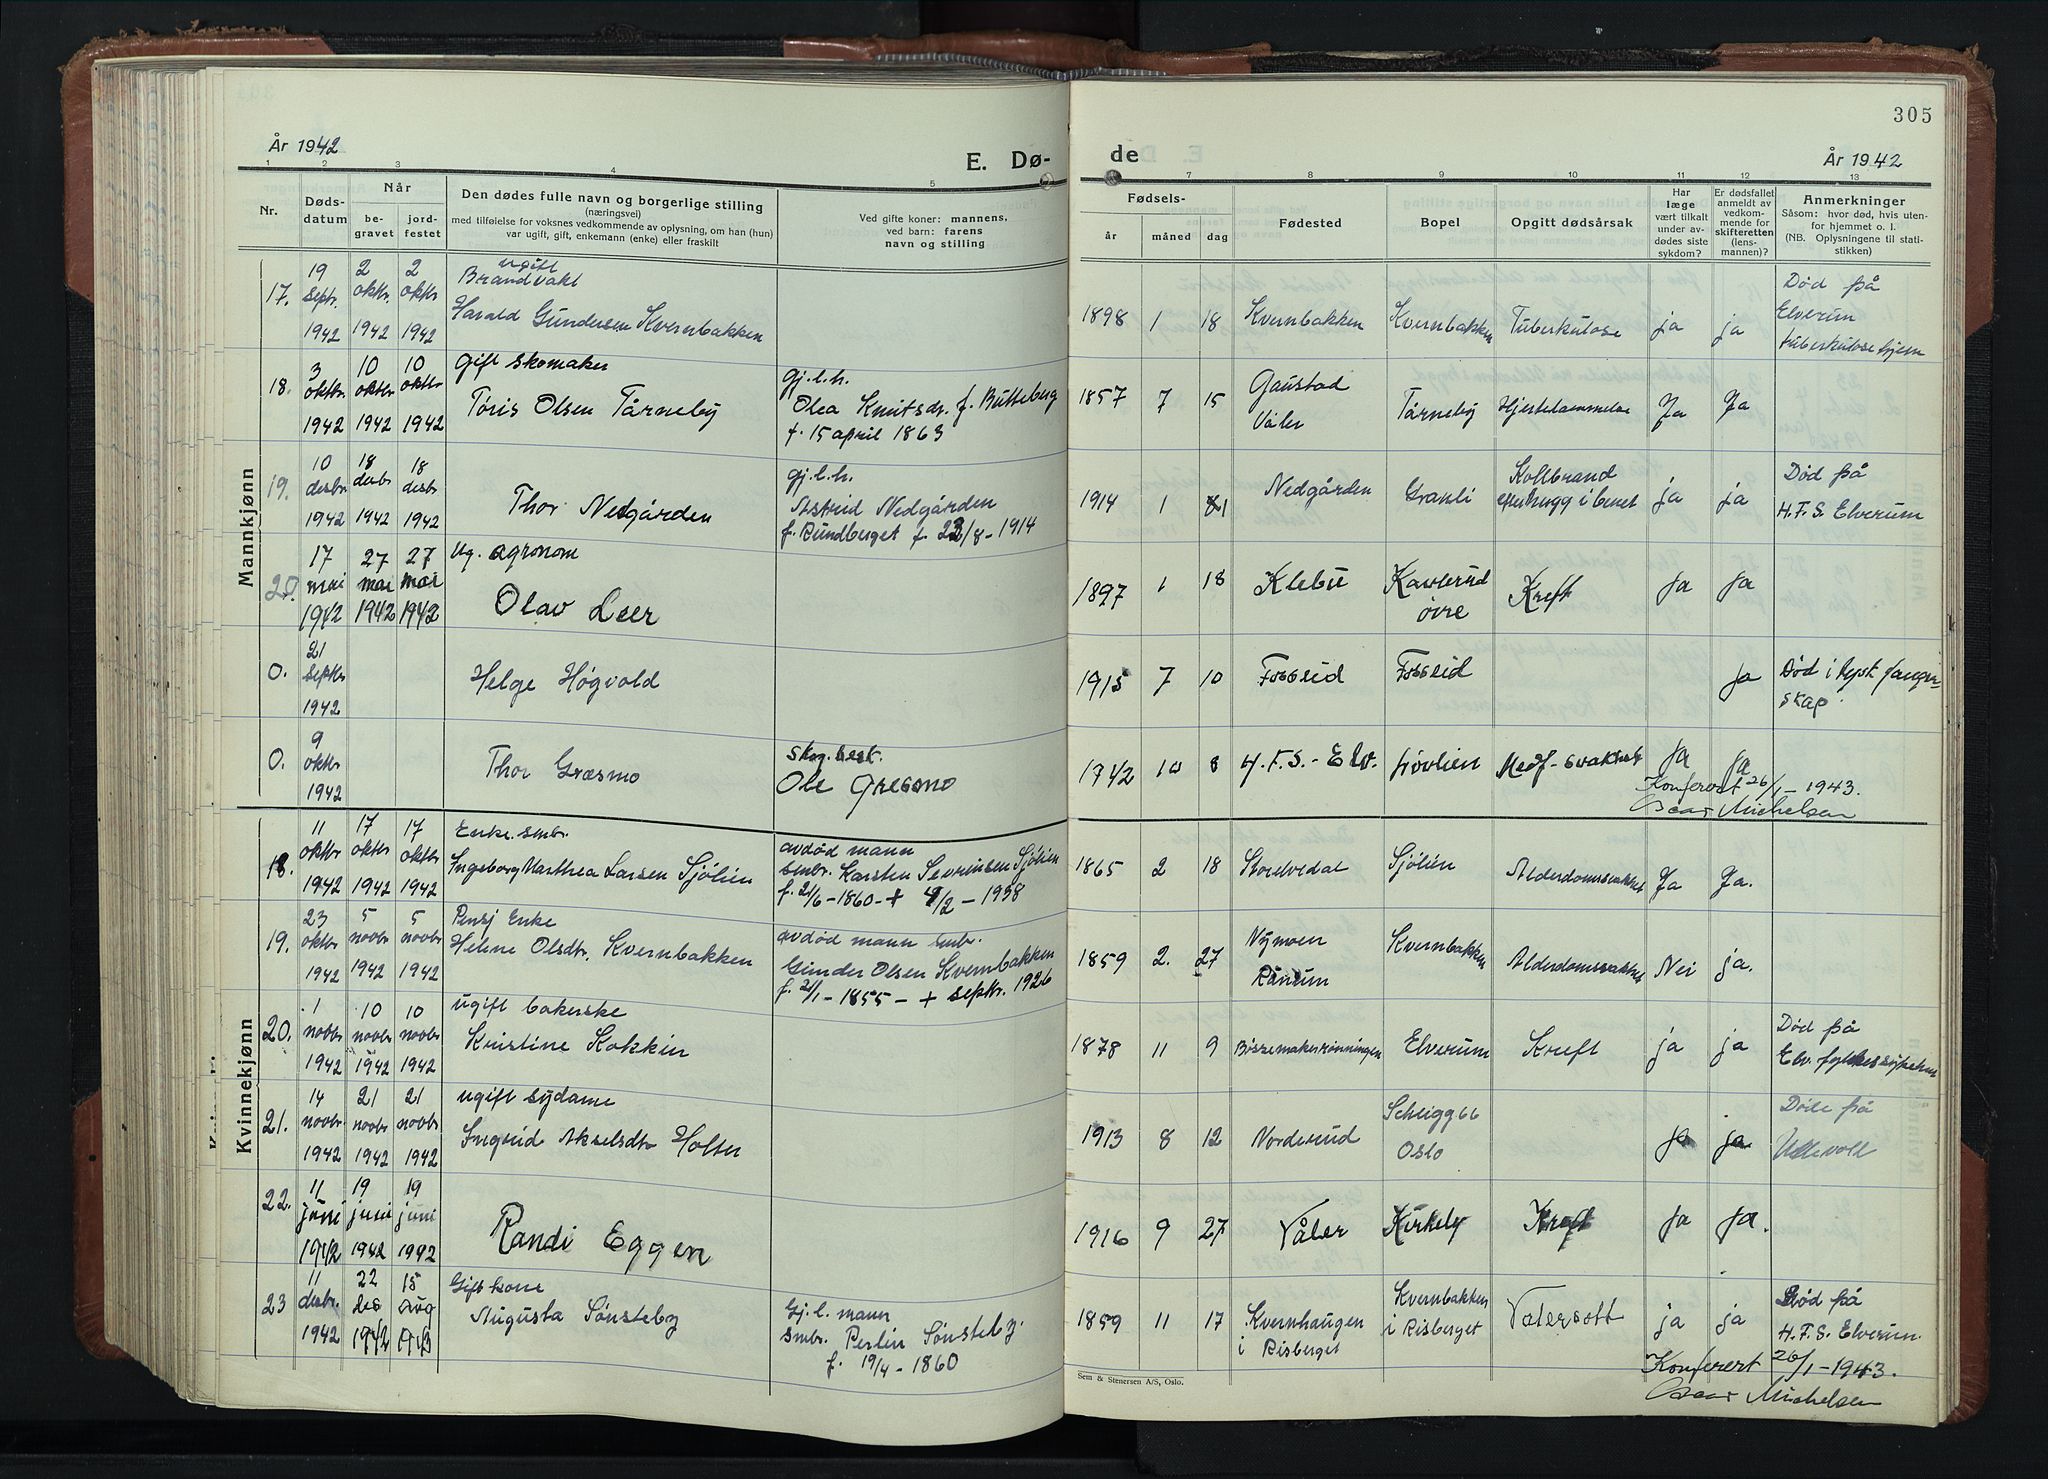 305
År 1942
E. Dø-
de
År 1942
1 2 3 4 5 7 8 9 10 11 12 13
Nr.
Døds-
datum
Når
be-
gravet
jord-
festet
Den dødes fulle navn og borgerlige stilling
(næringsvei)
med tilføielse for voksnes vedkommende av oplysning, om han (hun)
var ugift, gift, enkemann (enke) eller fraskilt
Ved gifte koner: mannens,
ved barn: farens
navn og stilling
Fødsels-
år måned dag
Fødested
Bopel
Opgitt dødsårsak
Har
læge
vært tilkalt
under av-
dødes siste
sykdom?
Er dødsfallet
anmeldt av
vedkom-
mende for
skifteretten
(lens-
mannen)?
Anmerkninger
Såsom: hvor død, hvis uten-
for hjemmet o. l.
(NB. Oplysningene til stati-
stikken)
Mannkjønn
17. 19 septr. 1942 2 oktbr. 1942 2 oktbr 1942
ugift
Brandvakt
Harald Gundersen Kvernbakken
1898 1 18 Kvernbakken Kvernbakken Tuberkulose ja ja
Død på
Elverum
tuberkulosehjem
18. 3 oktbr. 1942 10 oktbr 1942 10 oktbr 1942
Gift skomaker
Tøris Olsen Tårneby
gj.l.h.
Olea Knutsdr. f. Butteberg
f. 15 april 1863
1857 7 15 Gaustad
Våler
Tårneby Hjertelammelse Ja Ja
19. 10 desbr 1942 18 desbr 1942 18 desbr 1942
Thor Nedgården
gj.l.h.
Astrid Nedgården
f. Rundberget f. 23/8-1914
1914 1 21 Nedgården Granli
Koldbrand
efter hugg i benet
ja ja
Død på
H.F.S. Elverum
20. 17 mai 1942 27 mai 1942 27 mai 1942
Ug. agronom
Olav Leer
1897 1 18 Klebu
Kavlerud
øvre
Kreft Ja Ja
0. 21 septbr 1942
Helge Høgvold
1915 7 10 Fosseid Fosseid Ja
Død i tysk fangen-
skap.
0. 9 oktbr 1942
Thor Græsmo
Skog.best.
Ole Gresmo
1942 10 8 H.F.S. - Elv. Løvlien Medf. svakhet Ja Ja
Konferert 26/1 - 1943.
Oscar Michelsen
Kvinnekjønn
18. 11 oktbr 1942 17 oktbr 1942 17 oktbr 1942
Enke. smbr.
Ingeborg Marthea Larsen Sjølien
avdød mann
smbr. Karsten Severinsen Sjølien
f. 21/6-1860 - + 4/2 - 1938
1865 2 18 Storelvedal Sjølien Alderdomssvakhet Ja Ja.
19. 23 oktbr 1942 5 novbr 1942 5 novbr 1942
Pensj Enke
Helene Olsdtr. Kvernbakken
avdød mann smbr.
Gunder Olsen Kvernbakken
f. 21/1 - 1855 - + septbr. 1926
1859 2. 27 Nymoen
Rånum
Kvernbakken Alderdomssvakhet Nei ja.
20. 1 novbr 1942 10 novbr 1942 10 novbr 1942
ugift bakerske
Kristine Kokkin
1878 11 9 Bössemakerrönningen Elverum Kreft ja ja
Død på
Elv. fylkessykehus
21. 14 novbr 1942 21 novbr 1942 21 novbr 1942
ugift sydame
Ingrid Akselsdtr Holter
1913 8 12 Norderud
Schleigg 66
Oslo
ja ja
Døde på
Ullevold
22. 11 juni 1942 19 juni 1942 19 juni 1942
Randi Eggen
1916 9 27 Våler Kirkeby Kreft Ja Ja.
23 11 desbr. 1942 22 des 1942 15 aug 1943
Gift kone
Augusta Sønsteby
Gj.l. mann
smbr. Perlin Sønsteby.
f. 19/4 - 1860
1859 11 17 Kvernhaugen
i Risberget
Kvernbakken
i Risberget
Vatersott ja ja
Død på
H.F.S. Elverum
Konferert 26/1 - 1943.
Oscar Michelsen
Sem & Stenersen A/S, Oslo.